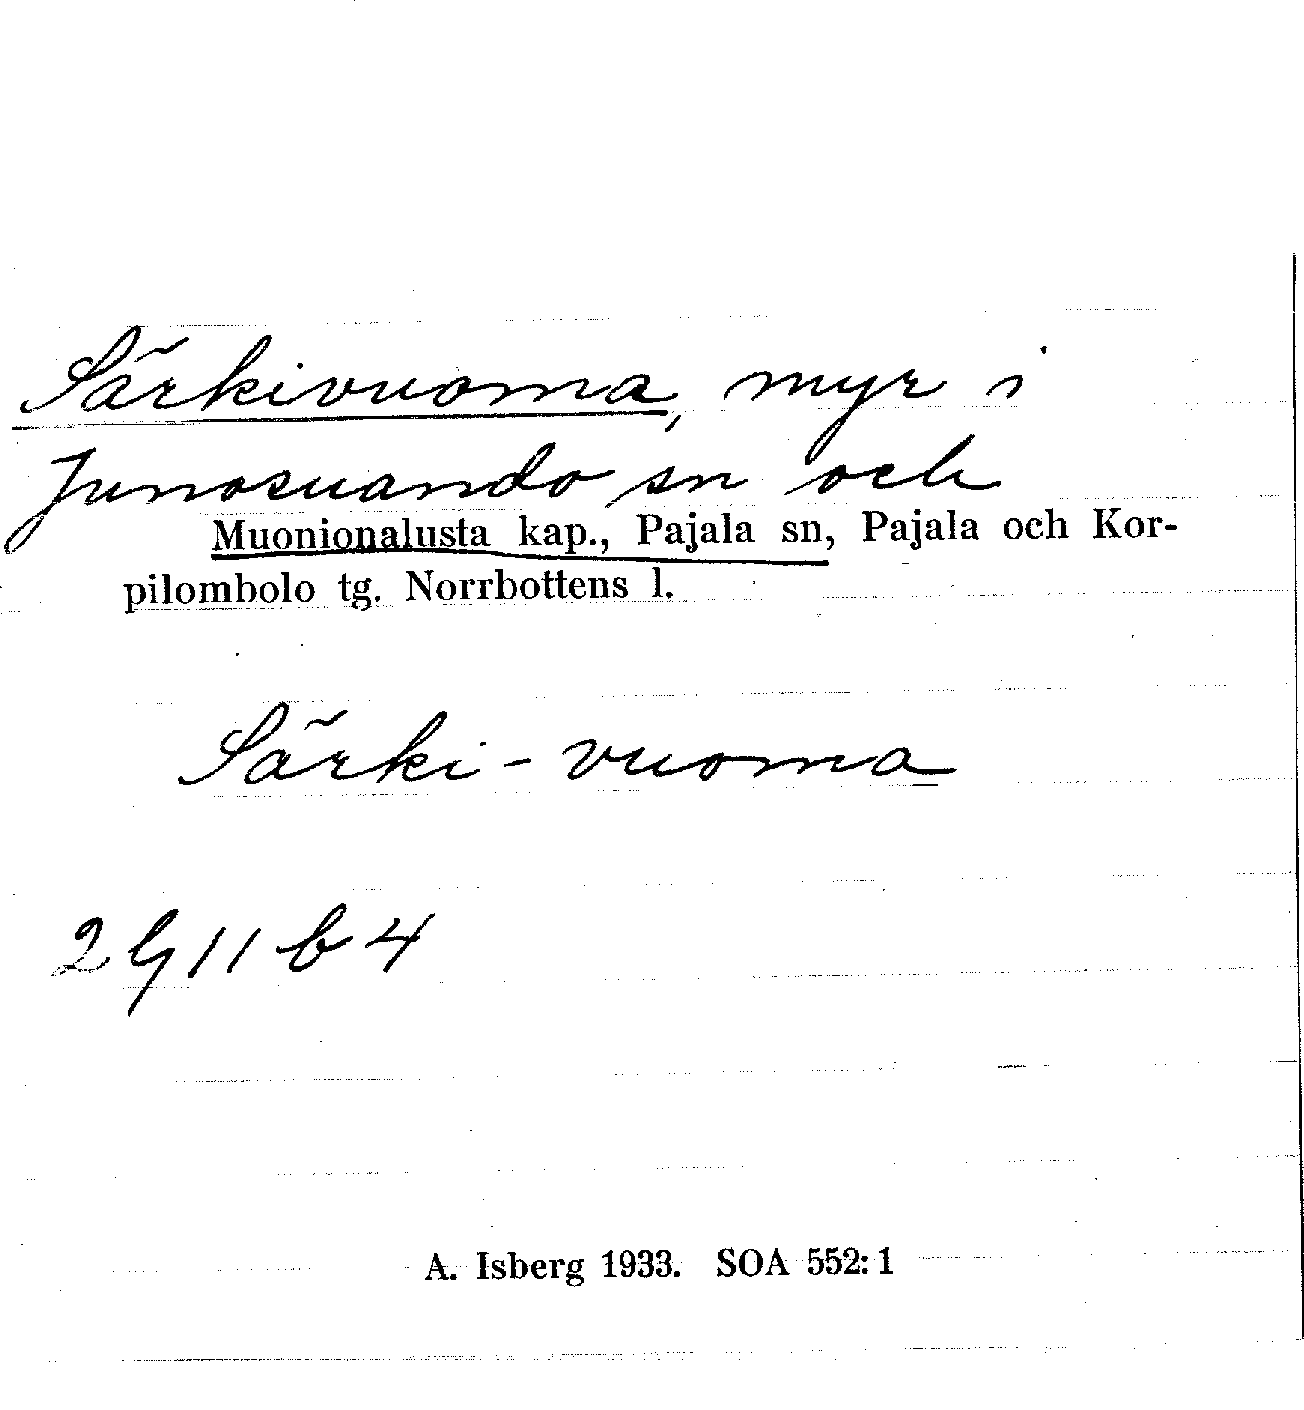 Särkivuoma, myr i
Junosuando sn och
Muonionalusta kap., Pajala sn, Pajala och Kor-
pilombolo tg. Norrbottens l.
Särki-vuoma
2911 b 4
A. Isberg 1933. SOA 552:1